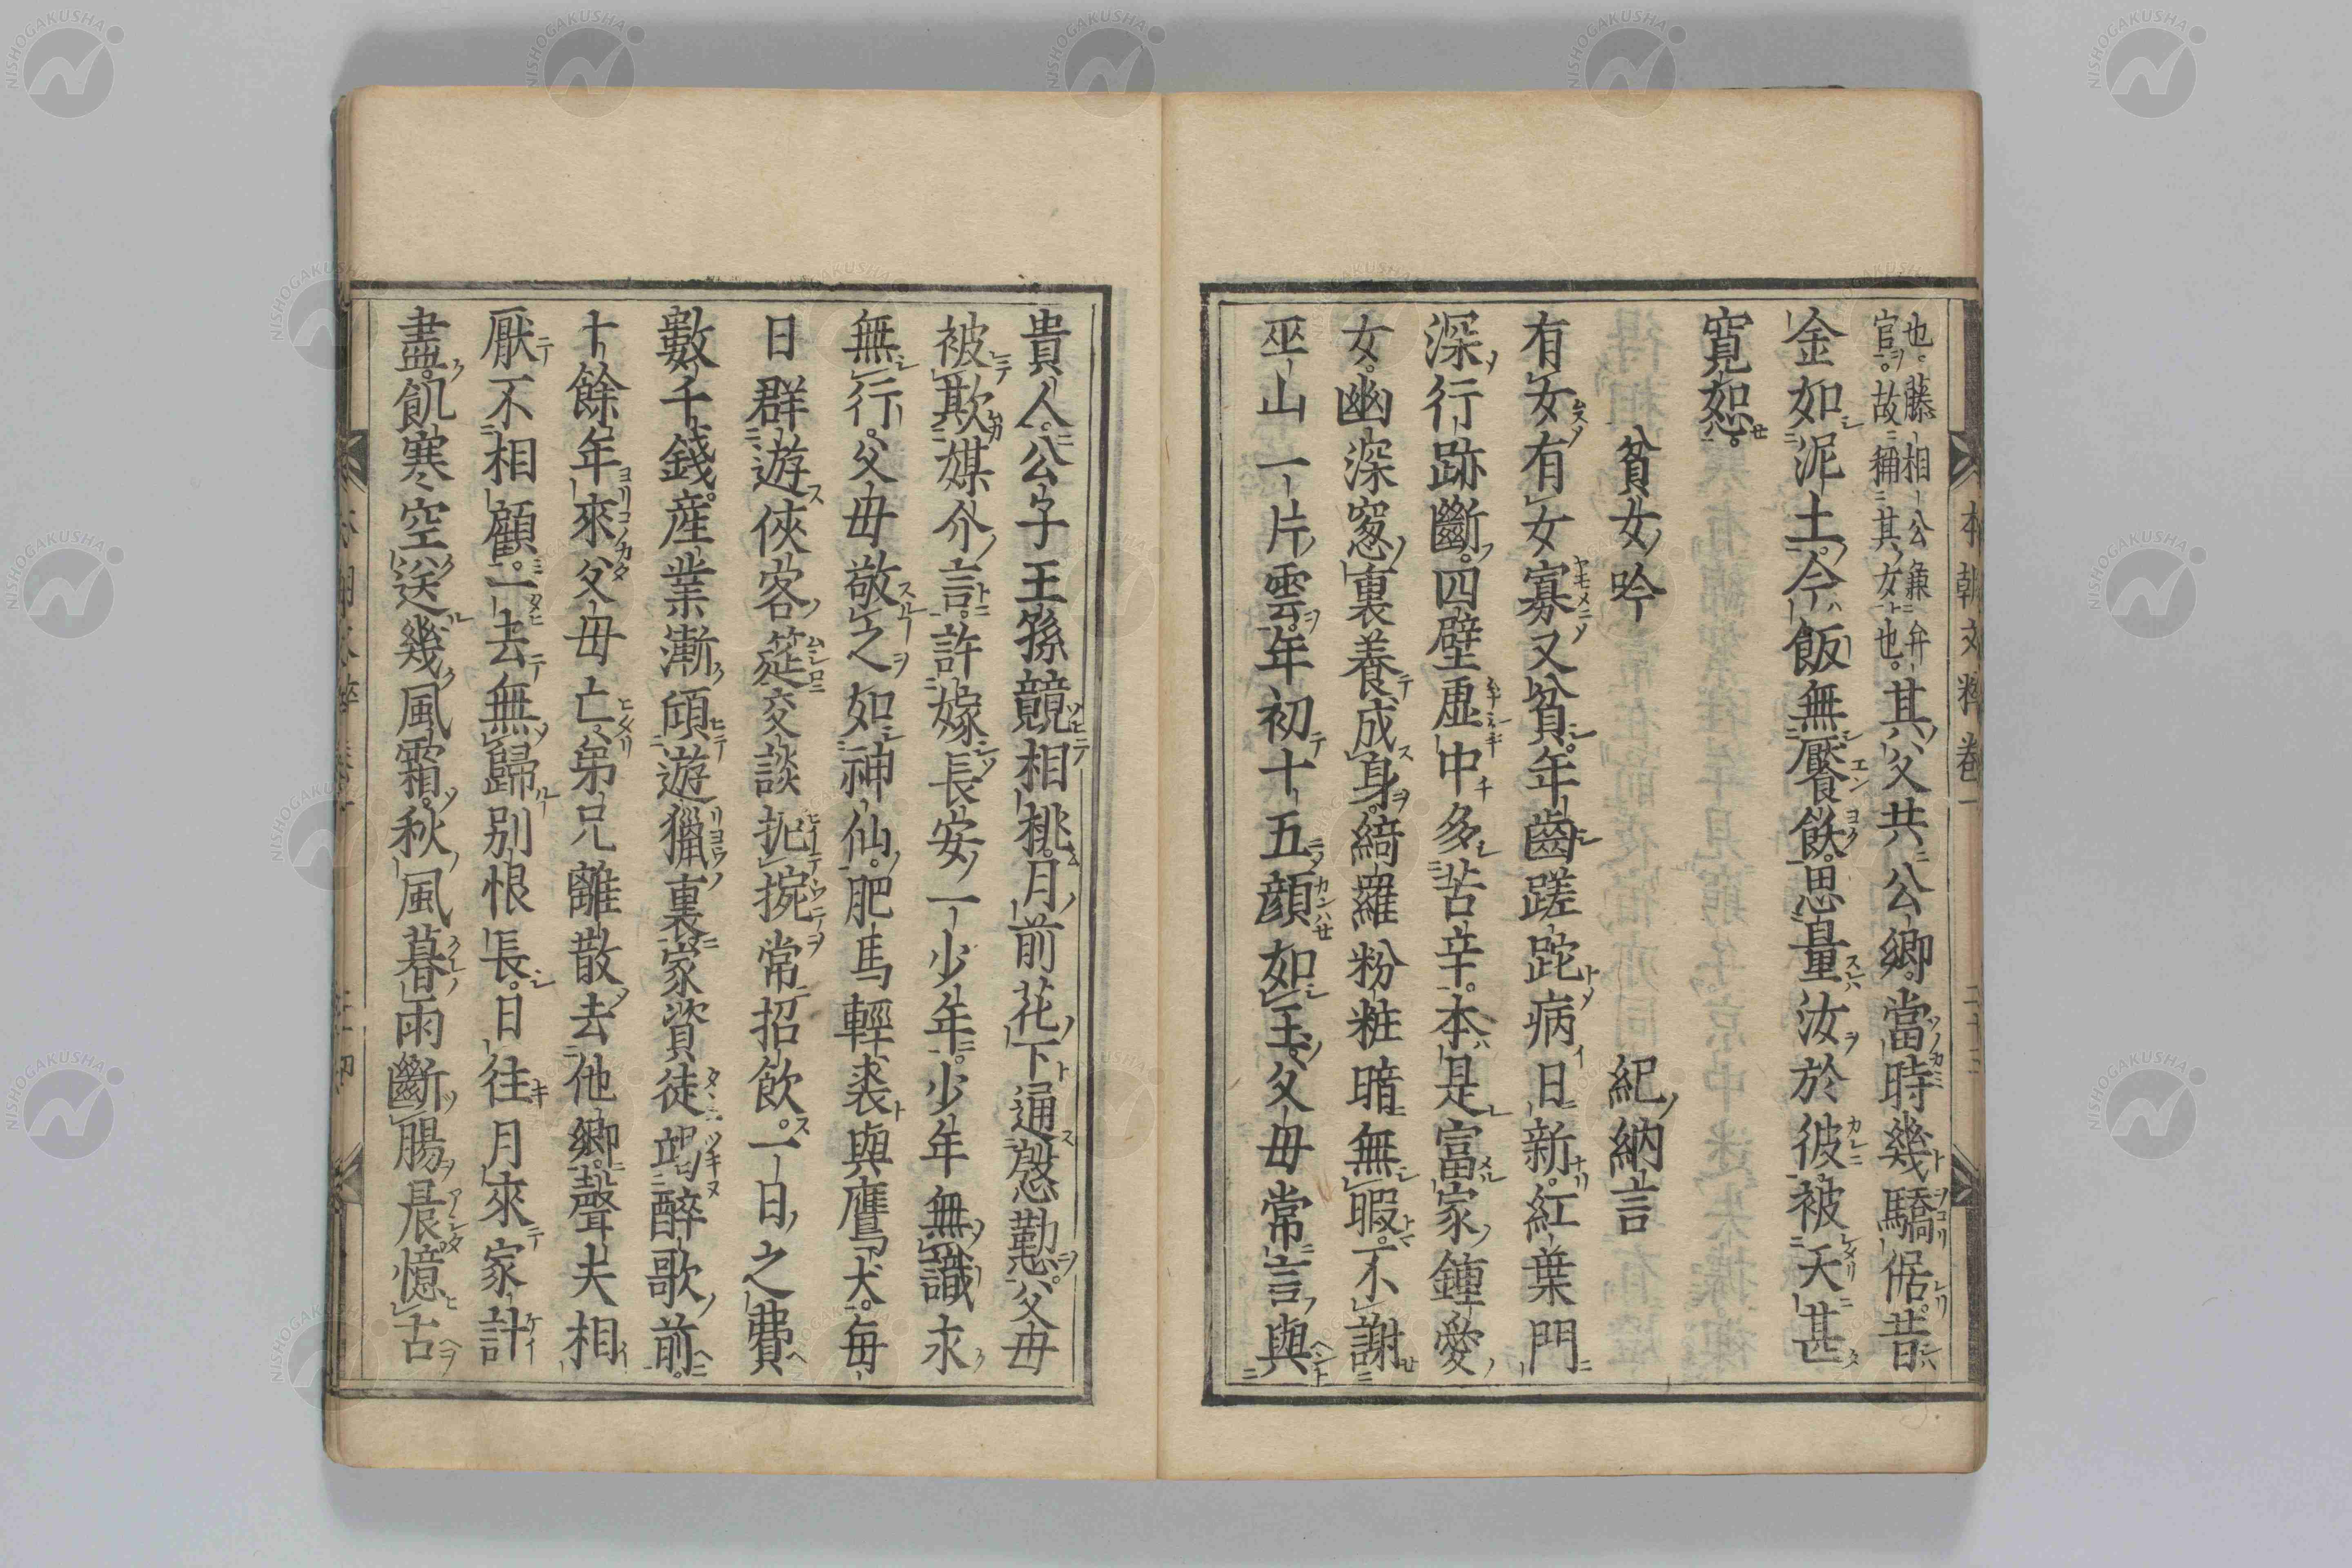 本朝文粹卷一 二十三
也。藤相公兼弁
官。故稱其女也。其父共公卿。當時幾驕倨。昔
金如泥土。今飯無饜飫。思量汝於彼被夭甚
寛恕。
貧女吟 紀納言
有女有女寡又貧。年齒蹉跎病日新。紅葉門
深行跡斷。四壁虛中多苦辛。本是富家鍾愛
女。幽深窓裏養成身。綺羅粉粧暗無暇。不謝
巫山一片雲。年初十五顔如玉。父母常言與
貴人。公子王孫競相挑。月前花下通慇懃。父母
被欺媒介言。許嫁長安一少年。少年無識求
無行。父母敬之如神仙。肥馬輕裘與鷹犬。每
日群遊俠客筵。交談扼掔常招飲。一日之費
數千錢。産業漸傾遊獵裏。家資徒竭醉歌前。
十餘年來父母亡。弟兄離散去他鄉。聟夫相
厭不相顧。一去無歸別恨長。日往月來家計
盡。飢寒空送幾風霜。秋風暮雨斷膓晨。憶古